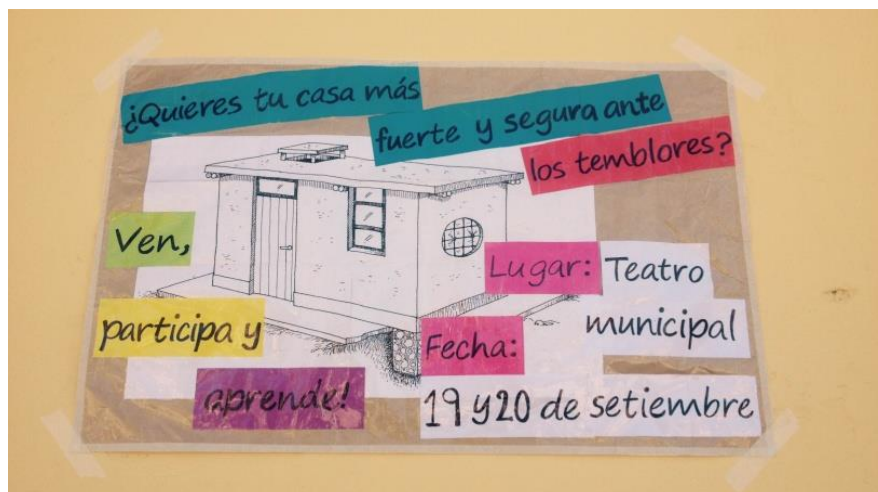 ¿Quieres tu casa más
fuerte y segura ante
los temblores?
Ven,
participa y
aprende!
Lugar: Teatro
municipal
Fecha:
19 y 20 de setiembre